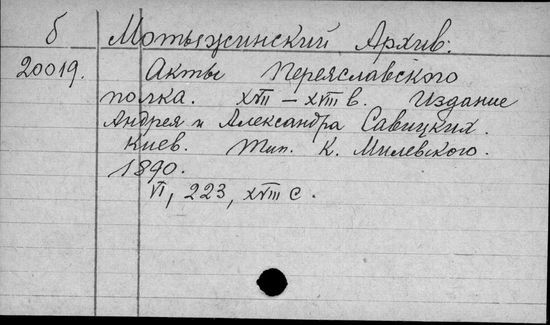 б Мотыжинский Архив.
20019. Акты Переяславского
полка. XVII – XVIII в. Издание
Андрея и Александра Савицких.
Киев. Тип. К. Милевского.
1890.
VI, 223, XVIII с.